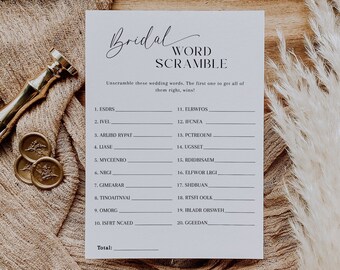 Bridal
WORD
SCRAMBLE
Unscramble these wedding words. The first one to get all of
them right, wins!
1. ESDRS
2. IVEL
3. ARLBID RYPAT
4. LIASE
5. MYCEENRO
6. NRGI
7. GIMEARAB
8. TINOAITNVAJ
9. OMORG
10. ISORT NCAED
11. ELRWFOS
12. IFCNEA
13. PCTREOENI
14. UGSSET
15. RDIBIBSAEM
16. ELFWOR LRGI
17. SHDRUAN
18. RTSFI OOLK
19. IBLADR ORSWEH
20. GGEEDAN
Total: